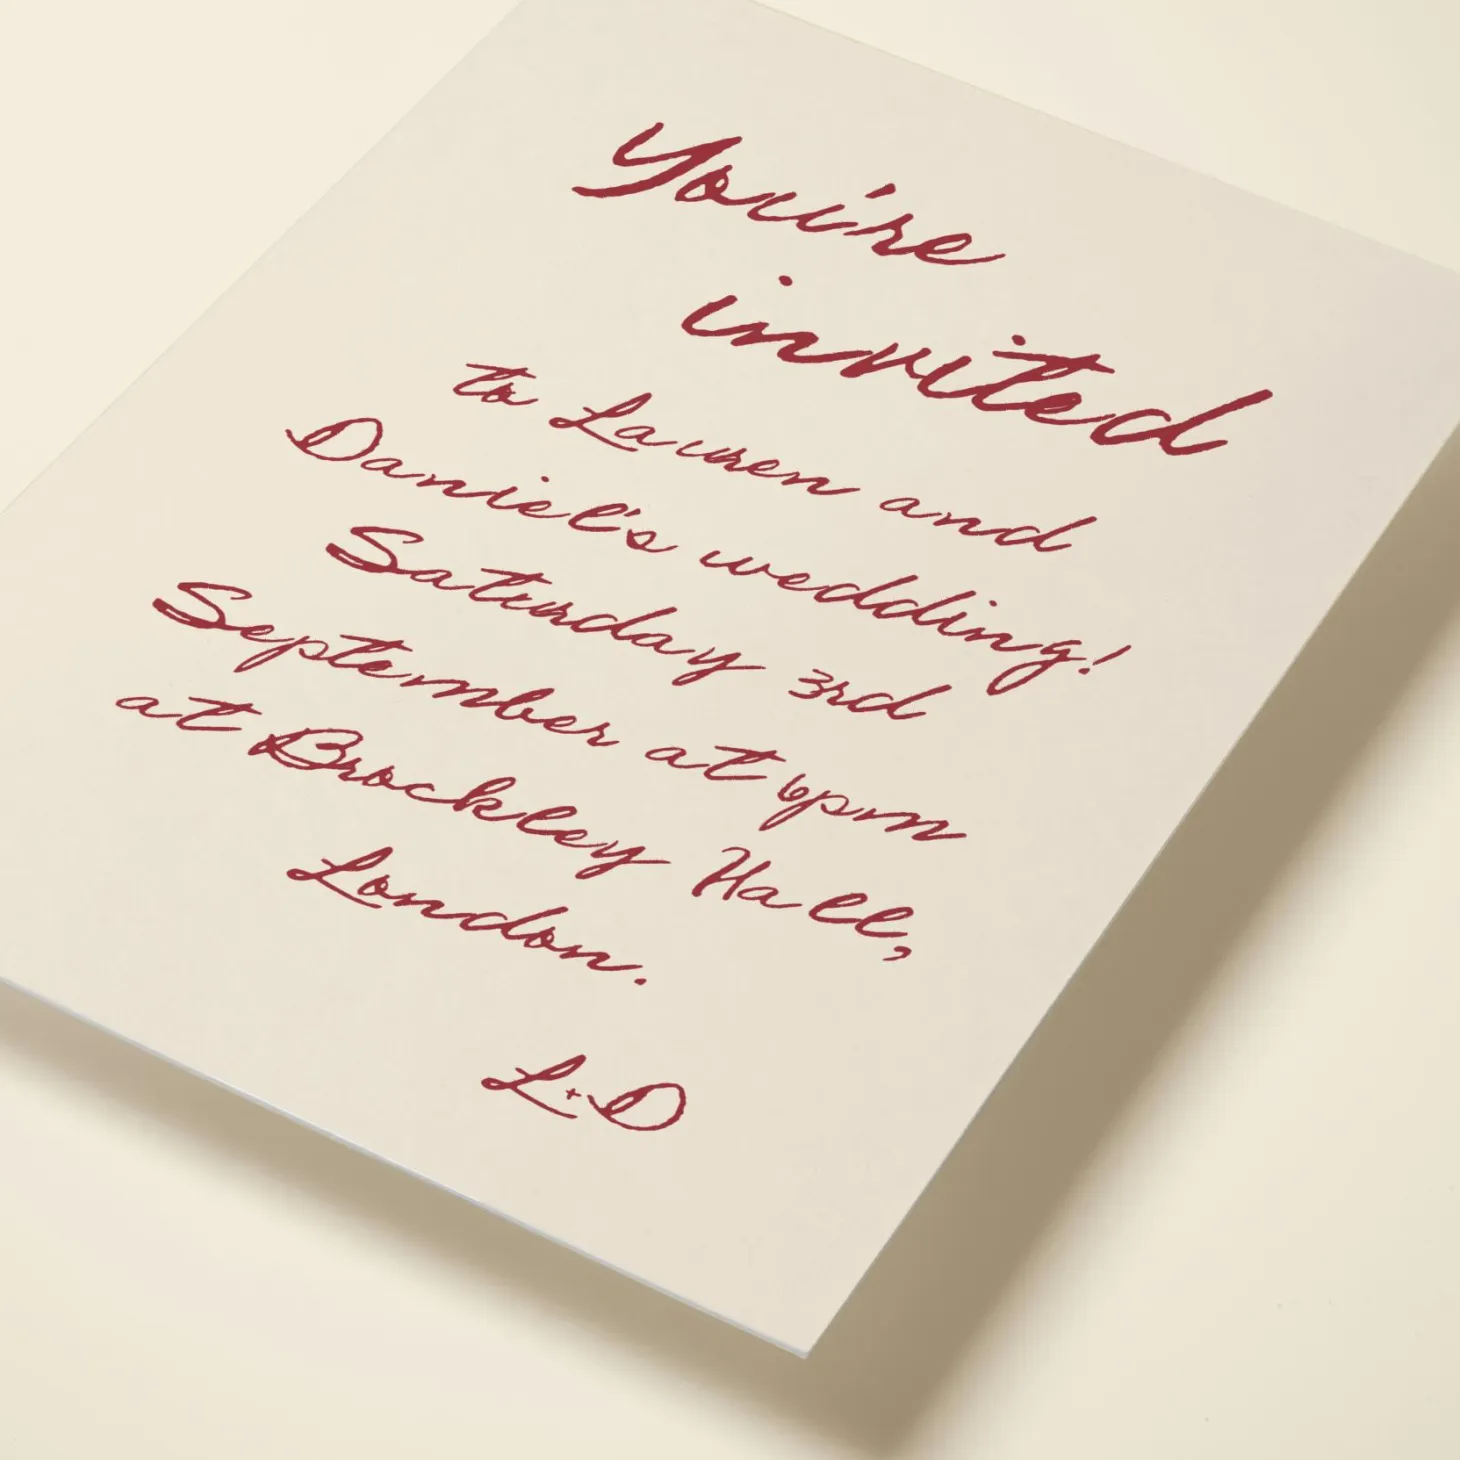 You're
invited
to Lauren and
Daniel's wedding!
Saturday 3rd
September at 6pm
at Brockley Hall,
London.
L+D